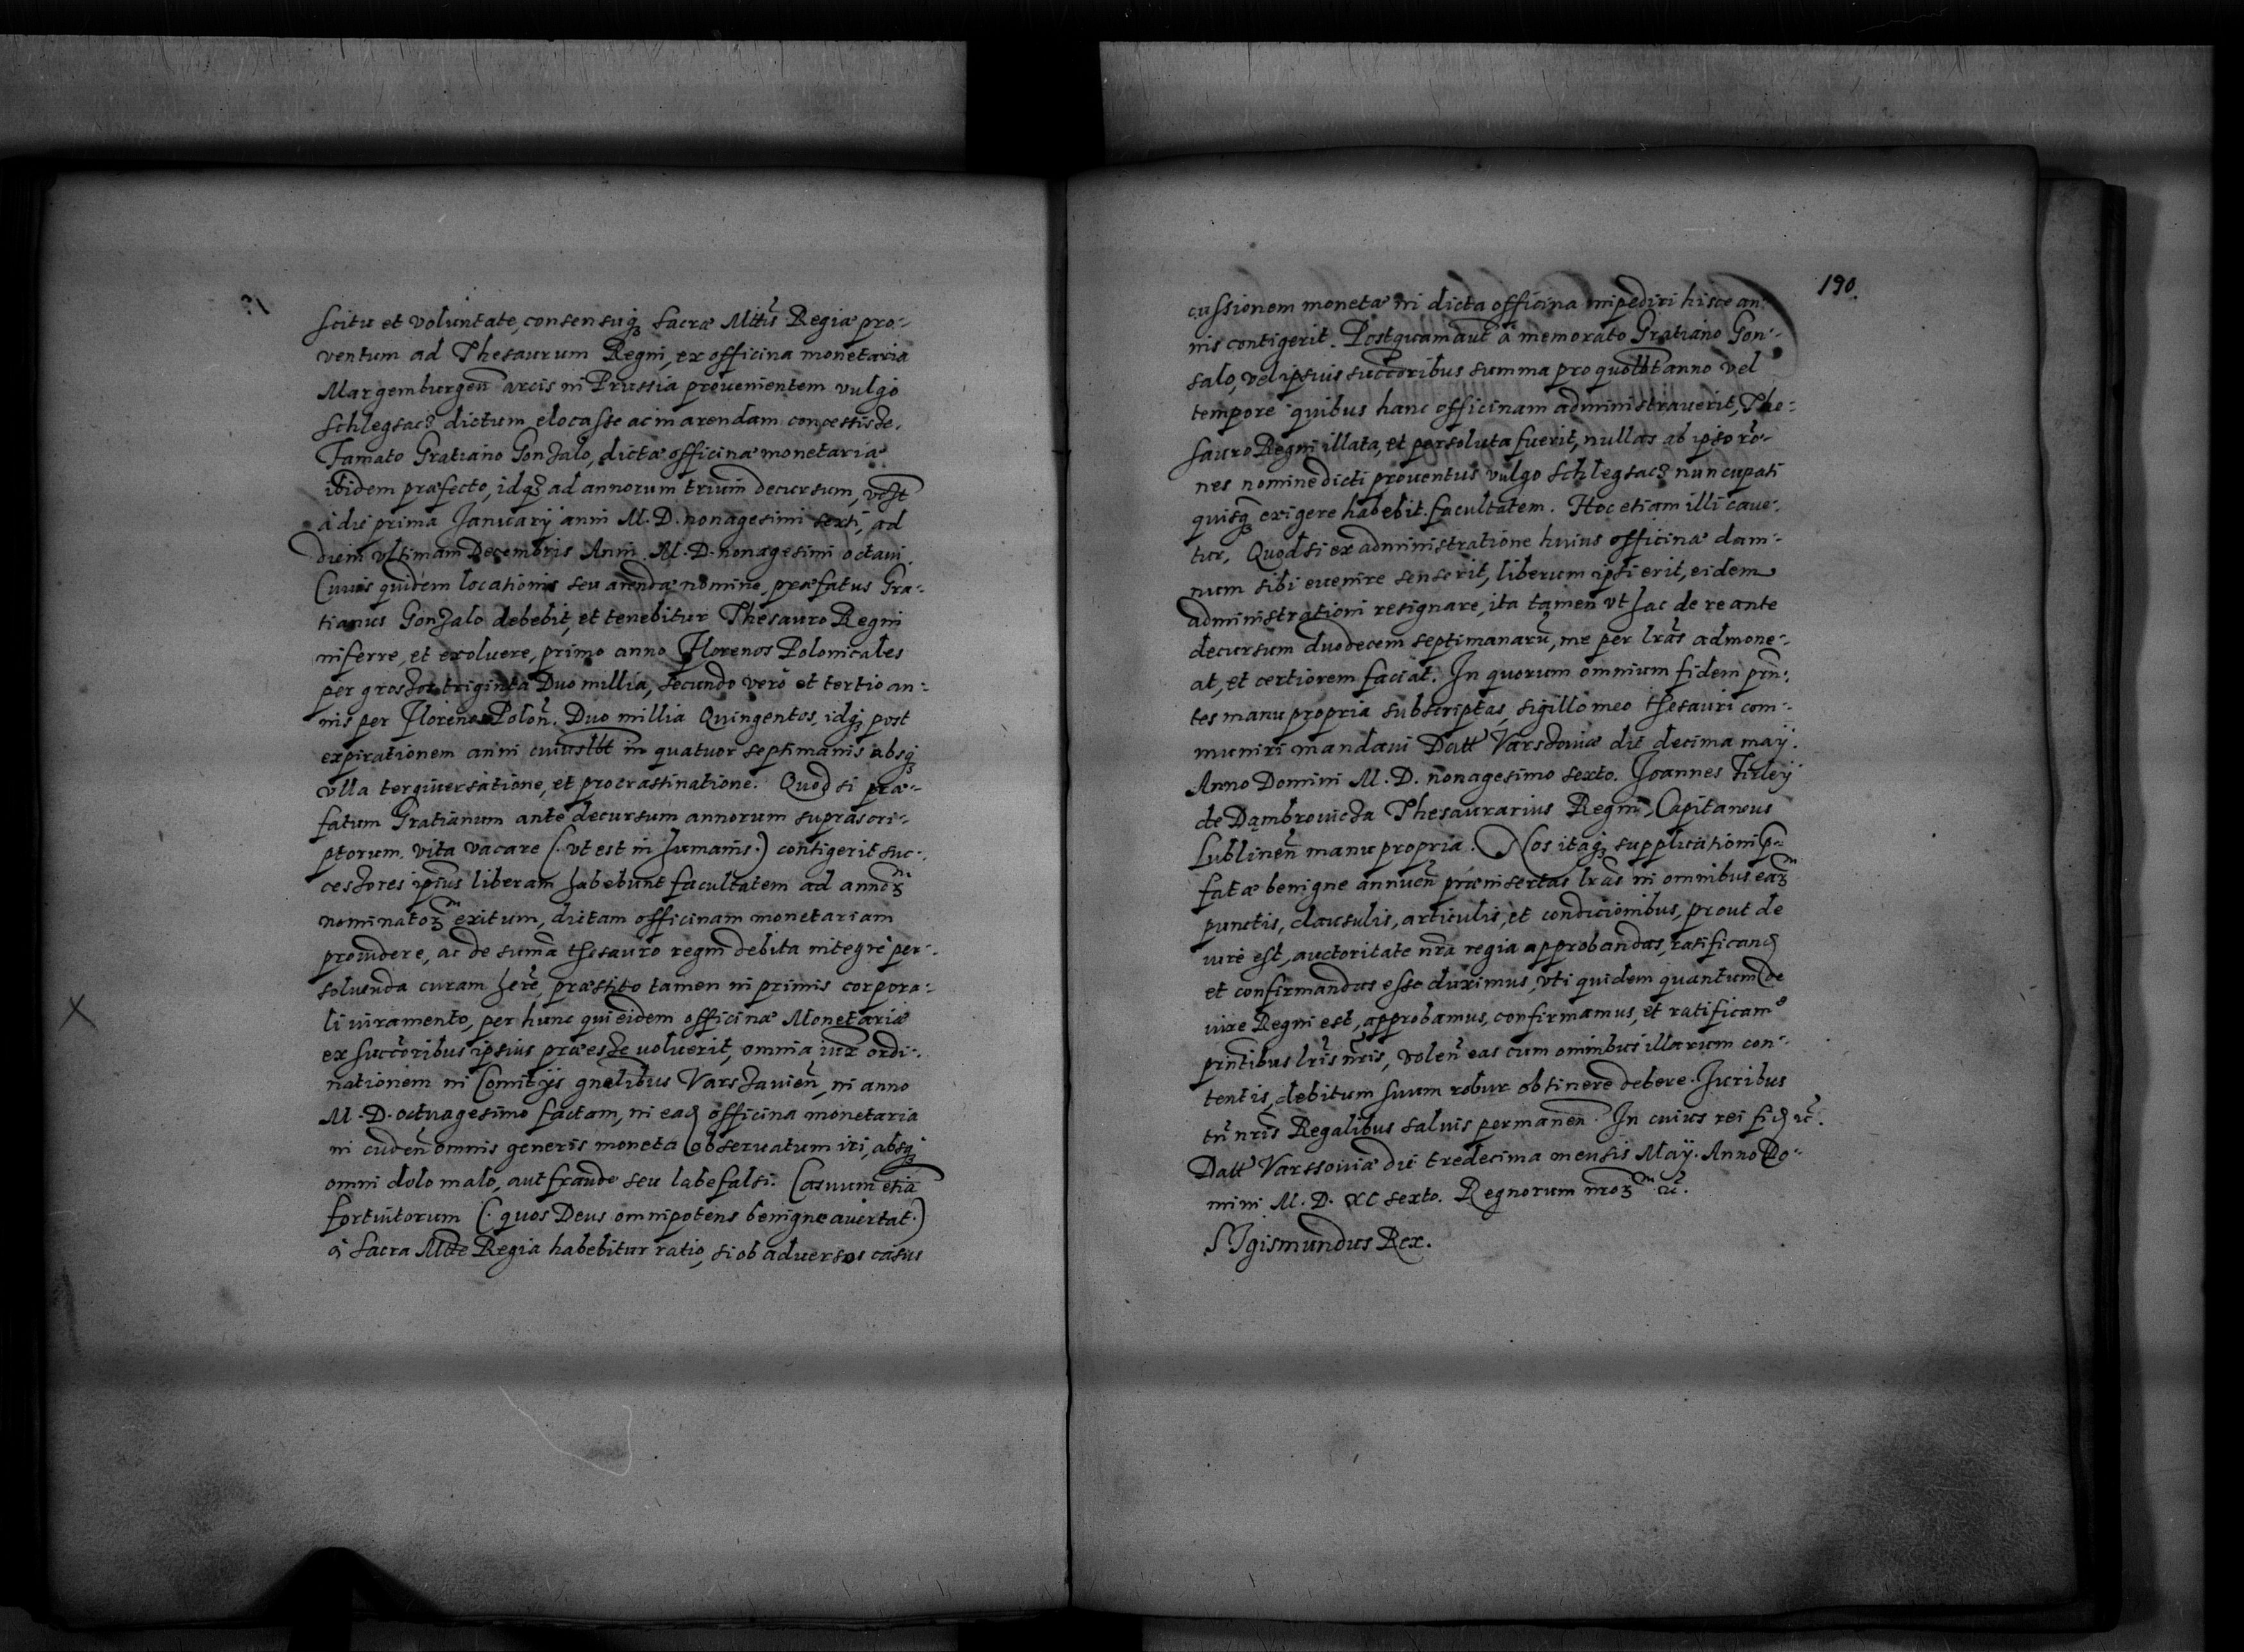 scitu et voluntate, consensuq₃ sacræ Mttis Regiæ pro-
ventum ad Thesaurum Regni, ex officina monetaria
Margemburgeñ arcis in Prussia prouenientem vulgo
Schlegsacz dictum elocasse ac in arendam concessisse.
Famato Gratiano Gonzalo, dictæ officinæ monetariæ
ibidem præfecto, idq₃ ad annorum trium decursum,
à die prima Januarij anni M.D. nonagesimi sexti, ad
diem vltimam Decembris Anni M.D. nonagesimi octaui.
Cuius quidem locationis seu arendæ nomine, præfatus Gra-
tianus Gonzalo debebit, et tenebitur Thesauro Regni
inferre, et exoluere, primo anno Florenos Polonicales
per grossos triginta Duo millia, secundo verò et tertio an-
nis per Florenos Poloñ. Duo millia Quingentos, idq₃ post
expirationem anni cuiuslbt in quatuor septimanis absq₃
vlla tergiuersatione, et procrastinatione. Quod si præ-
fatum Gratianum ante decursum annorum suprascri-
ptorum vita vacare (. vt est in humanis.) contigerit suc-
cessores ipsius liberam habebunt facultatem ad annoȝ
nominatoȝ exitum, dictam officinam monetariam
prouidere, ac de suma thesauro regni debita integrè per-
soluenda curam here, præstito tamen in primis corpora-
li iuramento, per hunc qui eidem officinæ Monetariæ
ex succoribus ipsius præesse uoluerit, omnia iux ordi-
nationem in Comitijs gnalibus Varsauien, in anno
M.D. octuagesimo factam, in ead officina monetaria
in cudeñ omnis generis moneta obseruatum iri, absq₃
omni dolo malo, aut fraude seu labe falsi. Casuum etiã
fortuitorum (. quos Deus omnipotens benigne auertat.)
à Sacra Mtte Regia habebitur ratio, si ob aduersos casus
190.
cussionem monetæ in dicta officina impediri hisce an-
nis contigerit. Postquam aut à memorato Gratiano Gon-
salo, vel ipsius succoribus summa pro quolbt anno vel
tempore quibus hanc officinam administrauerit, The-
sauro Regni illata, et persoluta fuerit, nullas ab ipso ro-
nes nomine dicti prouentus vulgo Schlegsacz nuncupati
quisq₃ exigere habebit facultatem. Hoc etiam illi caue-
tur, Quod si ex administratione huius officinæ dam-
num sibi euenire senserit, liberum ipsi erit, eidem
administrationi resignare, ita tamen vt hac de re ante
decursum duodecem septimanarũ, me per lras admone-
at, et certiorem faciat. In quorum omnium fidem prñ-
tes manu propria subscriptas, sigillo meo thesauri com-
muniri mandaui Datt Varssouiæ die decima maij.
Anno Domini M.D. nonagesimo sexto. Joannes Firley
de Dąmbrouicza Thesaurarius Regni, Capitaneus
Lublineñ manu propria. Nos itaq₃ supplicationi p-
fatæ benigne annueñ præinsertas lras in omnibus eaȝ
punctis, clausulis, articulis, et condicionibus, prout de
iure est, auctoritate nra regia approbandas, ratificand
et confirmandas esse duximus, vti quidem quantum de
iure Regni est, approbamus, confirmamus, et ratificam⁹
prntibus lris nris, voleñ eas cum omnibus illarum con-
tentis, debitum suum robur obtinere debere. Juribus
tñ nris Regalibus saluis permaneñ. In cuius rei fid ec.
Datt Varssouiæ die tredecima mensis Maij. Anno Do-
mini M.D. XC sexto. Regnorum nroȝ ec.
Sigismundus Rex.